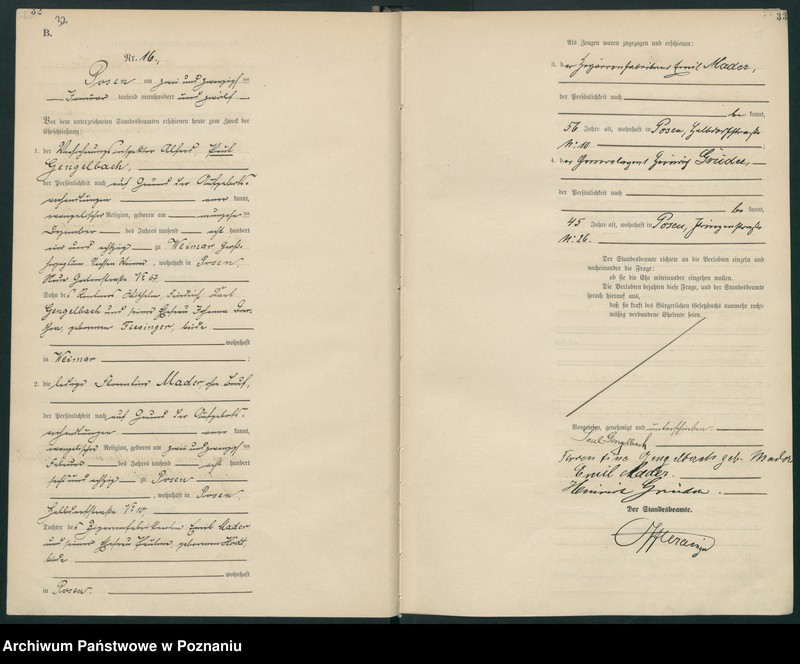 32
B.
Nr. 16.
Posen am zwei und zwanzigsten
Januar tausend neunhundert und zwölf
Vor dem unterzeichneten Standesbeamten erschienen heute zum Zweck der
Eheschließung:
1. der Versicherungsinspektor Alfred, Paul
Gengelbach,
der Persönlichkeit nach auf Grund der Aufgebots-
verhandlungen kannt,
evangelischer Religion, geboren am
Dezember des Jahres tausend acht hundert
vier und achtzig zu Weimar, Groß-
herzogtum Sachsen Weimar, wohnhaft in Posen,
Neue Gartenstraße № 67,
Sohn des Rentners Wilhelm, Friedrich, Karl
Gengelbach und seiner Ehefrau Johanna Doro-
thea, geborenen Fissinger, beide
wohnhaft
in Weimar ;
2. die ledige Florentine Mader, ohne Beruf,
der Persönlichkeit nach auf Grund der Aufgebots-
verhandlungen kannt,
evangelischer Religion, geboren am zwei und zwanzigsten
Februar des Jahres tausend acht hundert
sechs und achtzig zu Posen
, wohnhaft in Posen,
Halbdorfstraße № 10,
Tochter des Zigarrenfabrikanten Emil Mader
und seiner Ehefrau Pauline, geborenen
beide
wohnhaft
in Posen.
33
Als Zeugen waren zugezogen und erschienen:
3. der Zigarrenfabrikant Emil Mader,
der Persönlichkeit nach
be kannt,
56 Jahre alt, wohnhaft in Posen, Halbdorfstraße
№ 10 ;
4. der Generalagent Heinrich Grüder,
der Persönlichkeit nach
be kannt,
45 Jahre alt, wohnhaft in Posen, Prinzenstraße
№ 26.
Der Standesbeamte richtete an die Verlobten einzeln und
nacheinander die Frage:
ob sie die Ehe miteinander eingehen wollen.
Die Verlobten bejahten diese Frage, und der Standesbeamte
sprach hierauf aus,
daß sie kraft des Bürgerlichen Gesetzbuchs nunmehr recht-
mäßig verbundene Eheleute seien.
Vorgelesen, genehmigt und unterschrieben.
Paul Gengelbach
Florentine Gengelbach geb. Mader
Emil Mader.
Heinrich Grüder.
Der Standesbeamte.
Archiwum Państwowe w Poznaniu